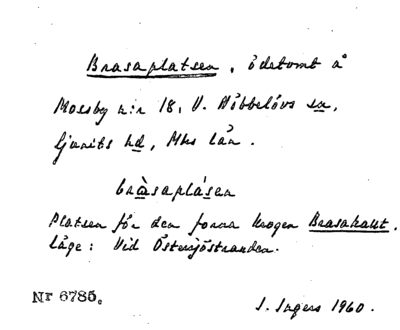 Brasaplatsen, ödetomt å
Mossby n:r 18, V. Nöbbelövs sn,
Ljunits hd, Mhs län.
bràsaplásen
Platsen för den forna krogen Brasakallt.
Läge: Vid Östersjöstranden.
Nr 6785.
I. Ingers 1960.